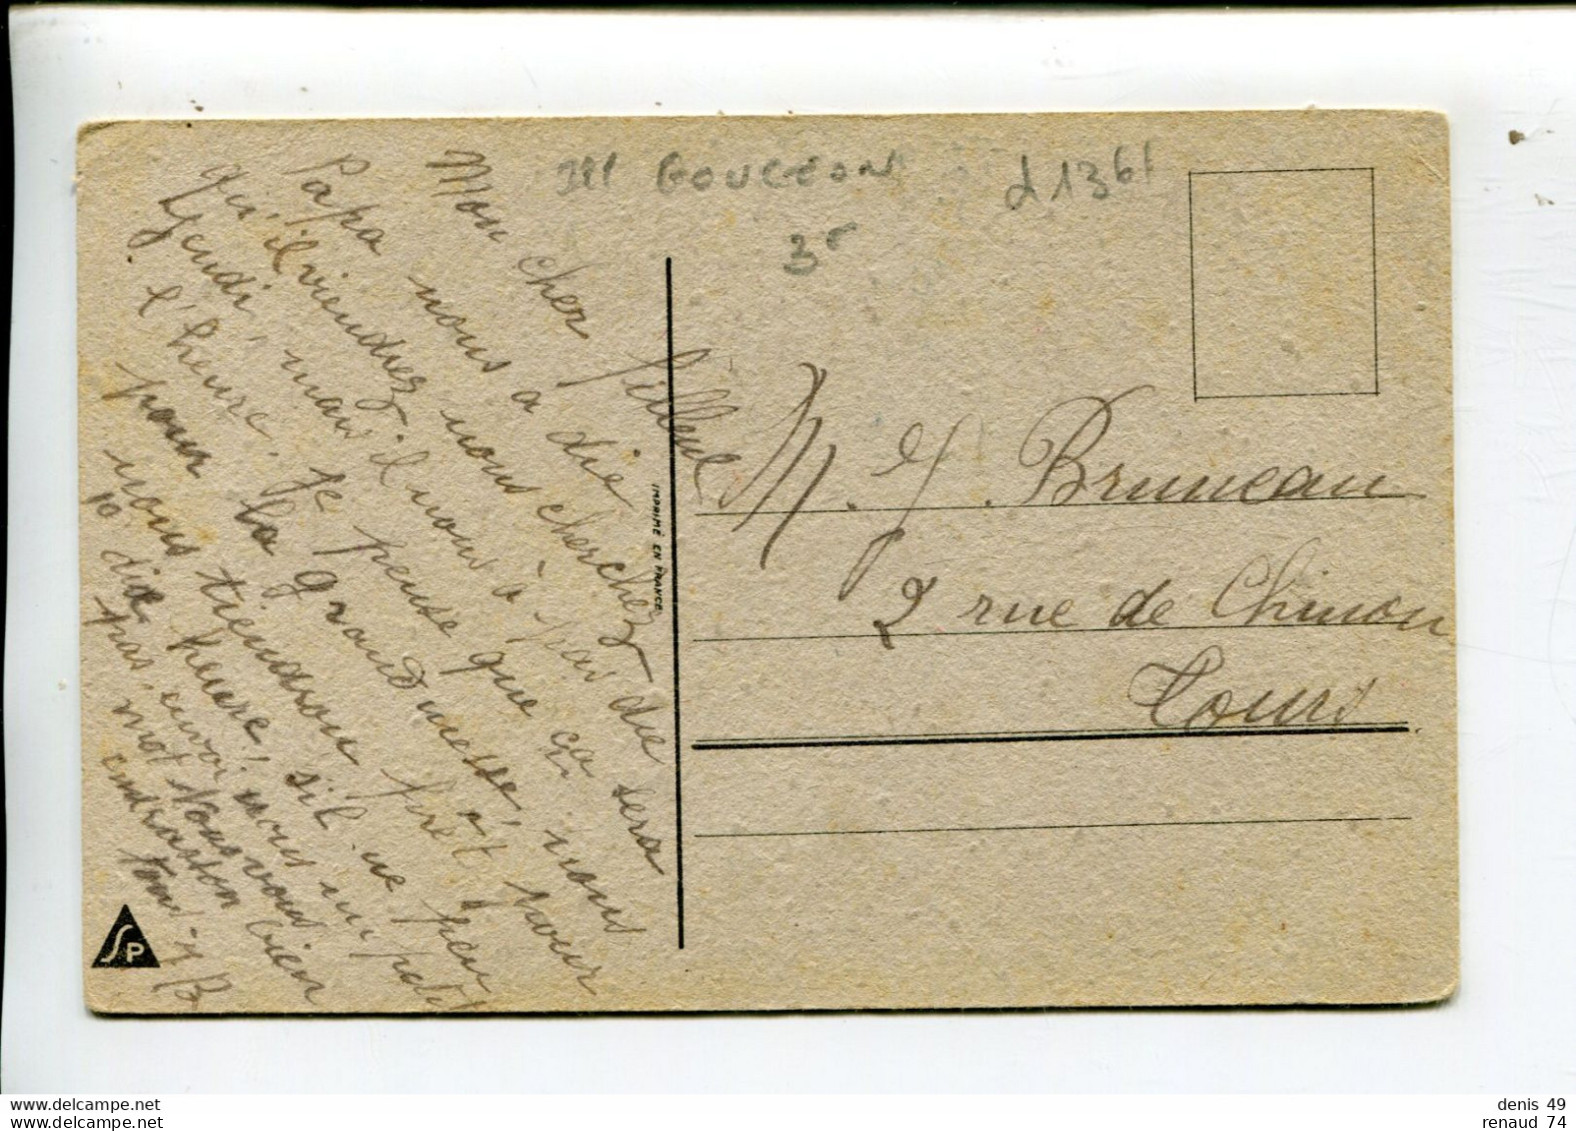 Ill GOUGEON
d 1361
3€
Mon cher filleul
Papa nous a dit
qu'il viendrez nous cherchez
Jeudi, mais il nous à pas die
l'heure. je pense que ça sera
pour la grand messe, nous
nous tiendron prêt pour
10 heure, s'il ne peu
pas, envoi nous un petit
mot Nous vous
embrasson bien
Tous. B
SP
IMPRIMÉ EN FRANCE
M. J. Bruneau
2 rue de Chinon
Tours
www.delcampe.net
www.delcampe.net
denis 49
renaud 74